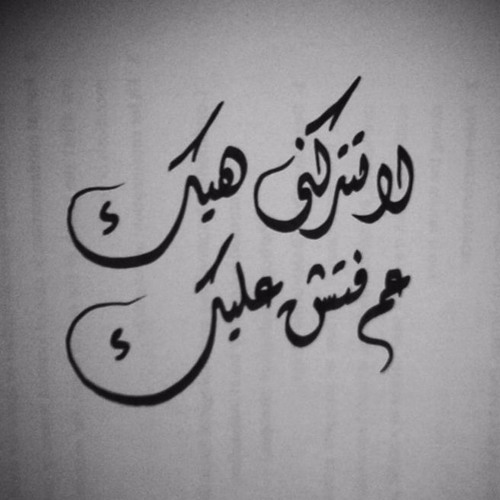 لا تتركني هيك
عم فتش عليك